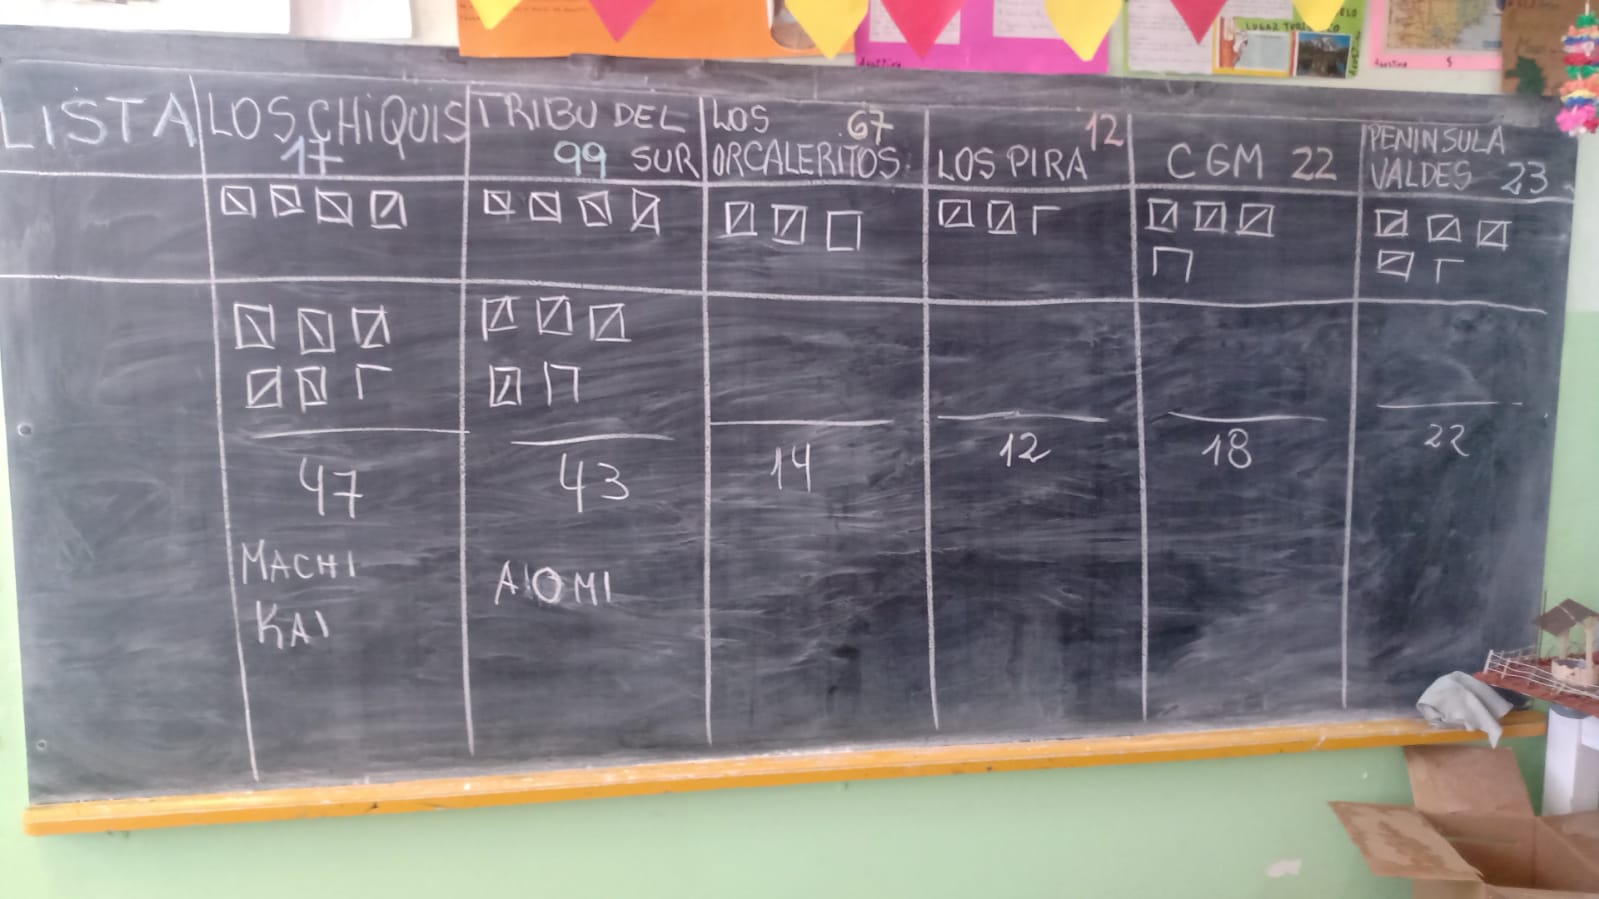 LISTA
LOS CHIQUIS
17
TRIBU DEL
99 SUR
LOS 67
ORCALERITOS
12
LOS PIRA
CGM 22
PENINSULA
VALDES 23
47
43
14
12
18
22
MACHI
KAI
AIOMI
LUGAR TURISTICO